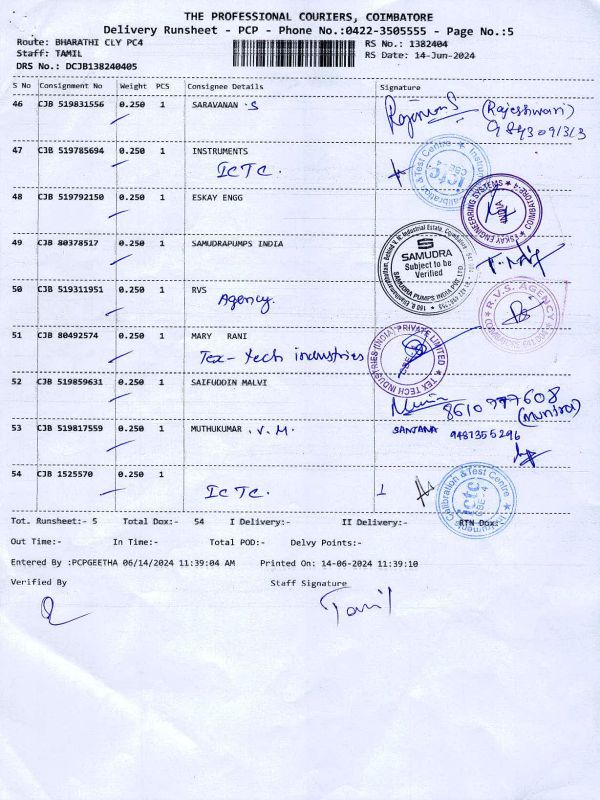 THE PROFESSIONAL COURIERS, COIMBATORE
Delivery Runsheet - PCP - Phone No.:0422-3505555 - Page No.:5
Route: BHARATHI CLY PC4 RS No.: 1382404
Staff: TAMIL RS Date: 14-Jun-2024
DRS No.: DCJB138240405
S No Consignment No Weight PCS Consignee Details Signature
46 CJB 519831556 0.250 1 SARAVANAN . S (Rajeshwari)
9843091313
47 CJB 519785694 0.250 1 INSTRUMENTS
ICTC.
Instrument Calibration & Test Centre
ictc
CBE-4
48 CJB 519792150 0.250 1 ESKAY ENGG
ESKAY ENGINEERING SYSTEMS
COIMBATORE-4
49 CJB 80378517 0.250 1 SAMUDRAPUMPS INDIA
SAMUDRA
Subject to be
Verified
SAMUDRA PUMPS INDIA PVT LTD
50 CJB 519311951 0.250 1 RVS
Agency.
R.V.S. AGENCY
51 CJB 80492574 0.250 1 MARY RANI
Tex-tech industries
TEX TECH INDUSTRIES (INDIA) PRIVATE LIMITED
52 CJB 519859631 0.250 1 SAIFUDDIN MALVI
8610777608
53 CJB 519817559 0.250 1 MUTHUKUMAR . V. M. SANJANA 9487355296
54 CJB 1525570 0.250 1
ICTC. 1
Instrument Calibration & Test Centre
ictc
CBE-4
Tot. Runsheet:- 5 Total Dox:- 54 I Delivery:- II Delivery:- RTN Dox:-
Out Time:- In Time:- Total POD:- Delvy Points:-
Entered By :PCPGEETHA 06/14/2024 11:39:04 AM Printed On: 14-06-2024 11:39:10
Verified By Staff Signature
Tamil